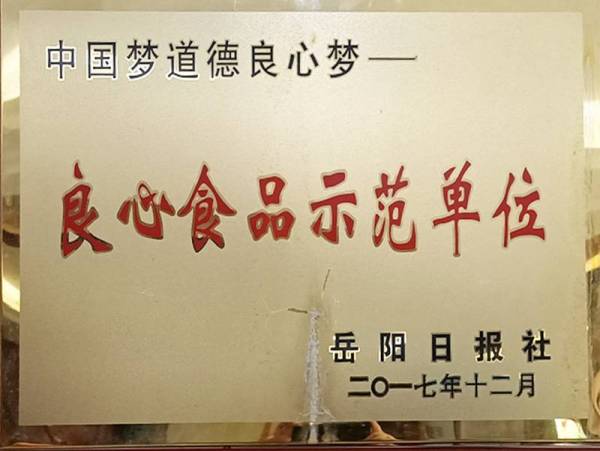 中国梦道德良心梦—
良心食品示范单位
岳阳日报社
二〇一七年十二月